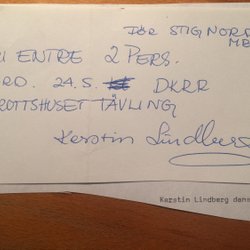 FÖR STIG NORD
ENTRE 2 PERS.
RD. 24.5 DKRR
ROTTSHUSET TÄVLING
Kerstin Lindberg
Kerstin Lindberg dans